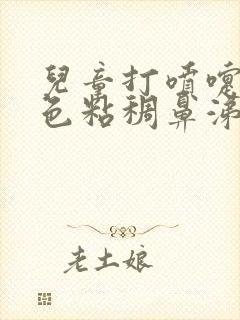 兒童打噴嚏
色粘稠鼻涕
老土娘